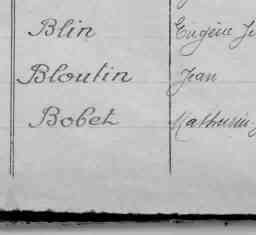 Blin Eugène
Bloutin Jean
Bobet Mathurin